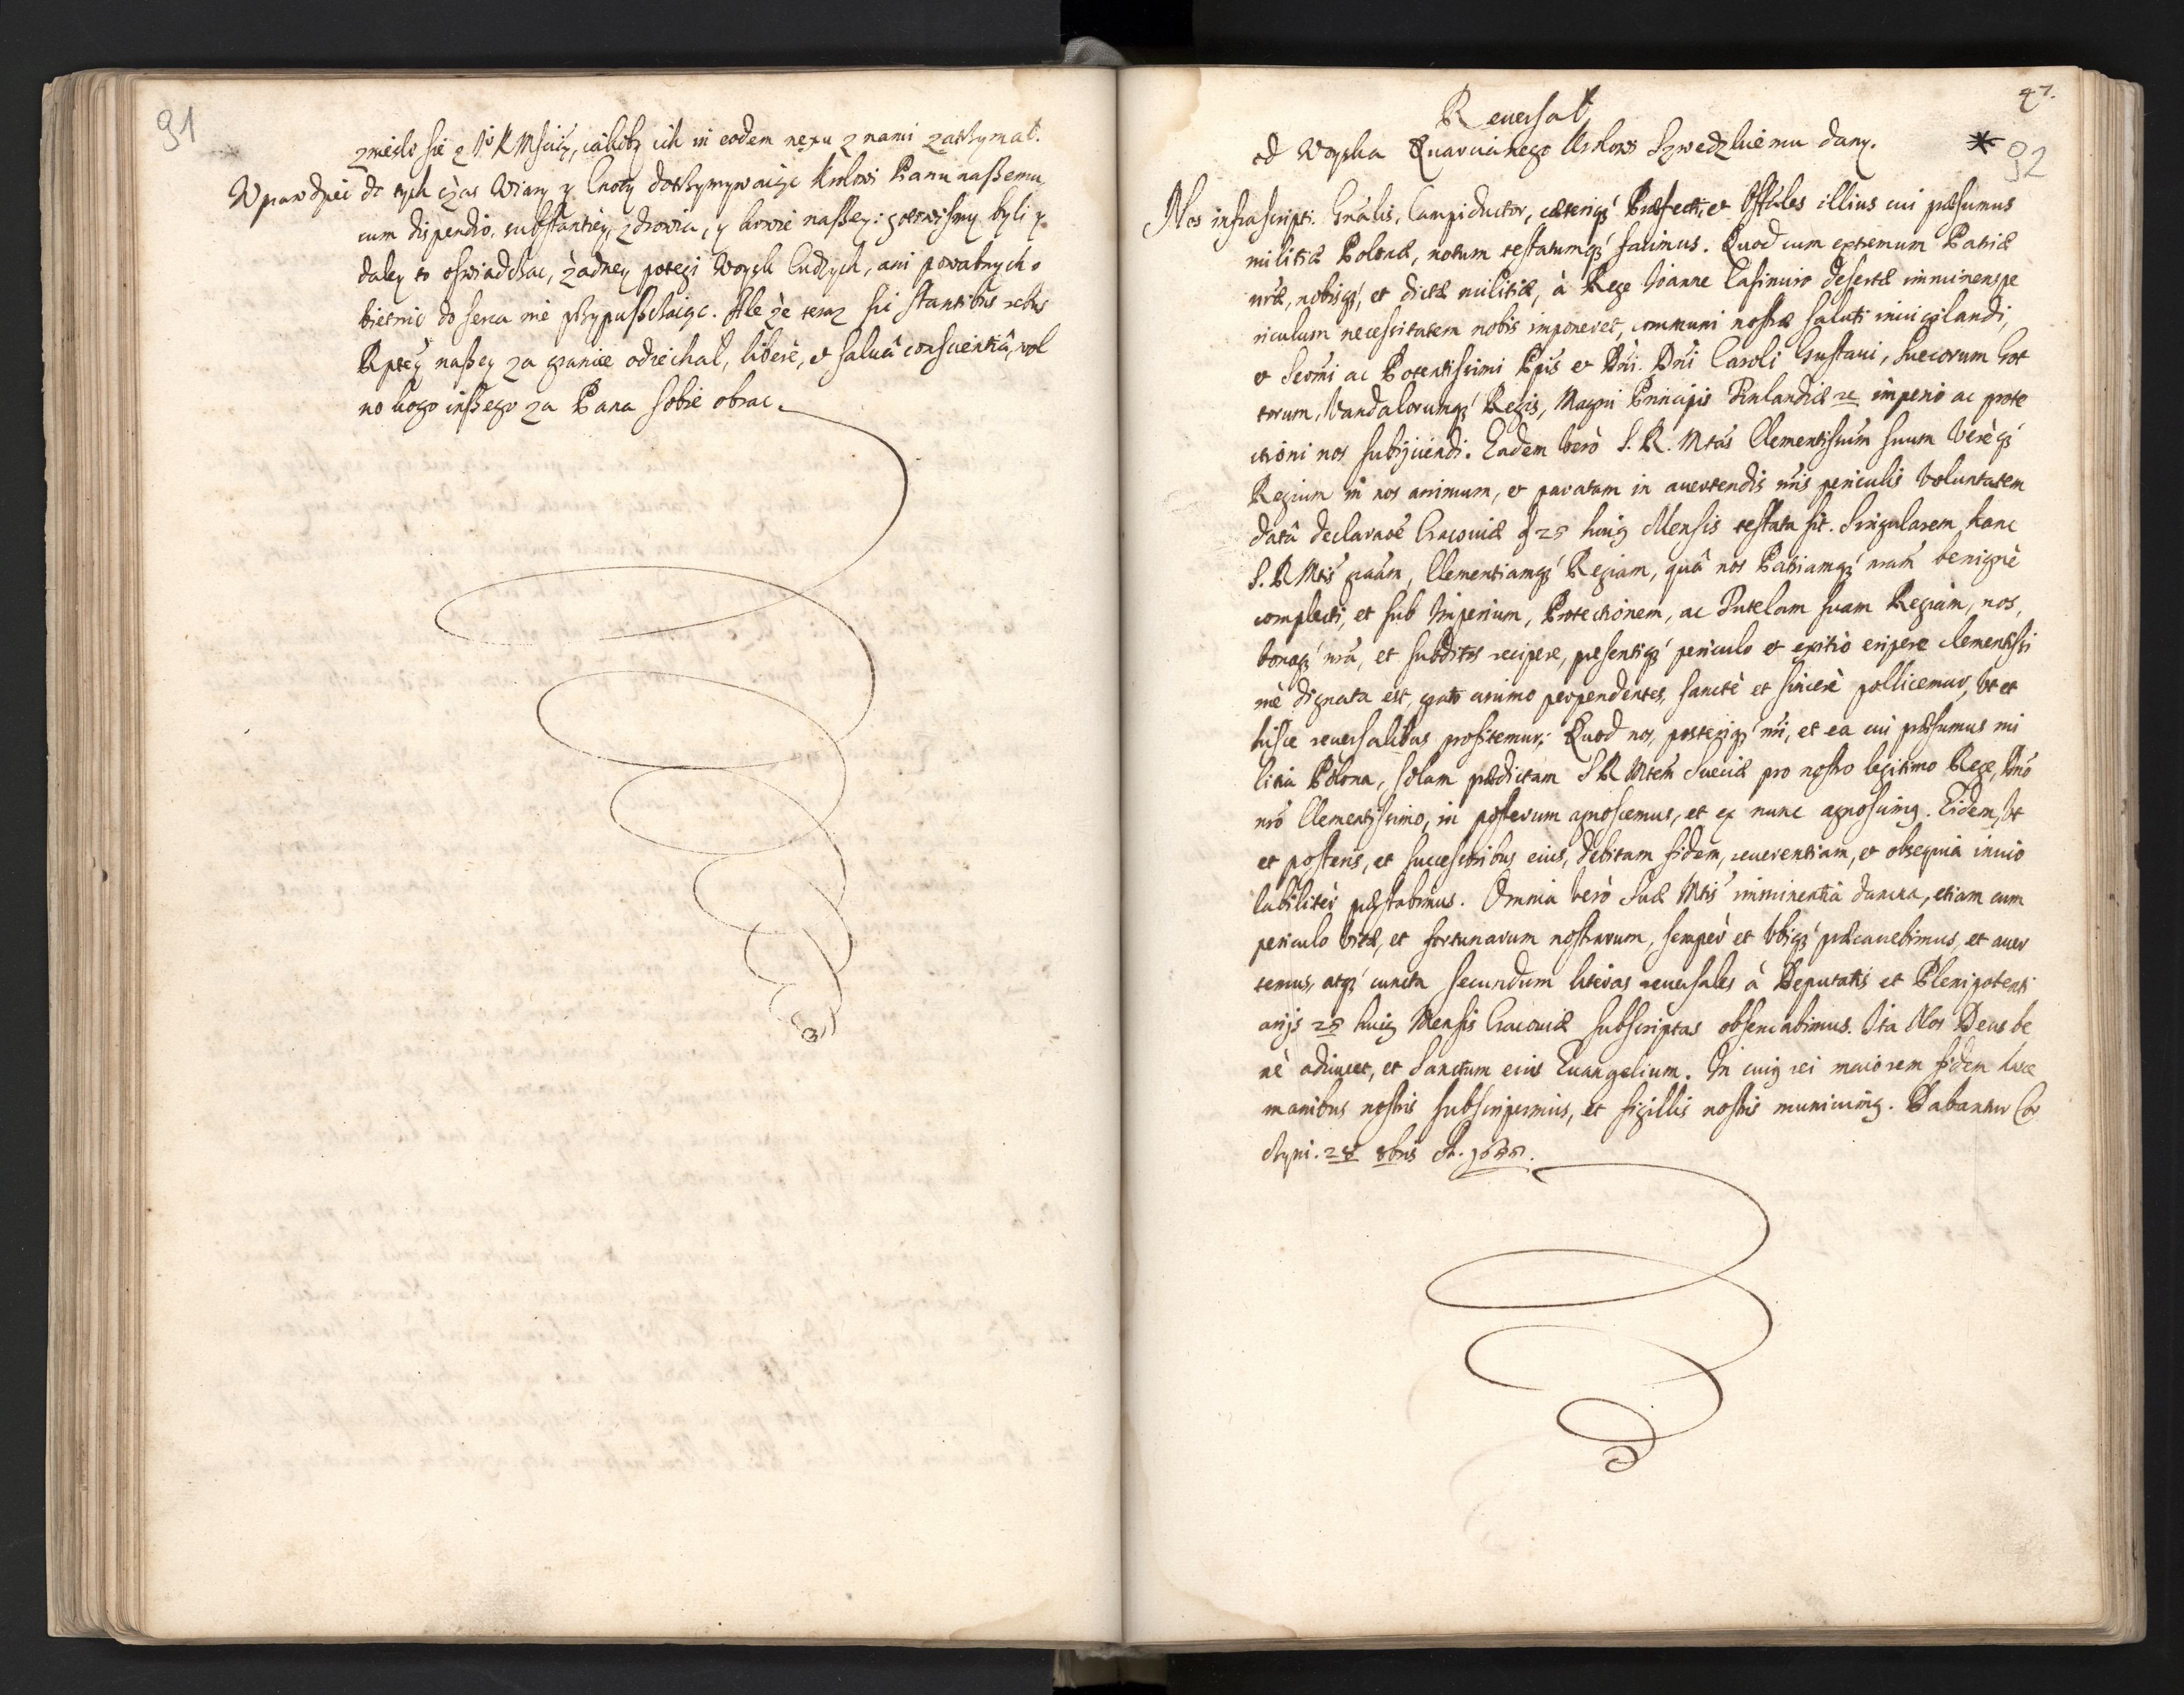 91
zniesło się z IJo K Mścią, iakoby ich in eodem nexu z nami zatrzymał.
Wprawdzieć do tych czas Wiary y Cnoty dotrzymywaiąc Krolowi Panu naßemu,
cum dispendio, substantiey, zdrowia, y krwie naßey: gotowiśmy byli y
daley to oświadczać, żadney potęgi Woysk Cudzych, ani powabnych o
bietnic do serca nie przypuszczaiąc. Ale że teraz sic stantibus rebus
Rptey naßey za granice odiechał, liberè, et saluâ conscientiâ, wol
no kogo inßego za Pana sobie obrac.
47.
Reuersał
od Woyska Quarcianego Krolowi Szwedzkiemu dany.
* 92
Nos infrascripti Gnãlis, Campiductor, cæteriqz Præfecti, et Offãles illius cui præsumus
militiæ Polonæ, notum testatumqz facimus. Quod cum extremum Patriæ
nræ, nobisqz, et dictæ militiæ, à Rege Ioanne Casimiro desertæ imminens pe
riculum necessitatem nobis imponeret, communi nostræ saluti inuigilandi,
et Sermi ac Potentissimi Ppis et Dni. Dni Caroli Gustaui, Suecorum Got
torum, Vandalorumqz Regis, Magni Principis Finlandiæ etc imperio ac prote
ctioni nos subijciendi. Eadem verò S. R. Mtas Clementissum suum verèqz
Regium in nos animum, et paratam in auertendis nris periculis voluntatem
datâ declaraõe Cracouiæ d 25 huius Mensis testata sit. Singularem hanc
S. R Mtis graãm, Clementiamqz Regiam, quâ nos Patriamqz nram benignè
complecti, et sub Imperium, Protectionem, ac Tutelam suam Regiam, nos,
bonaqz nra, et subditos recipere, presentiqz periculo et exitio eripere clementissi
mè dignata est, grato animo perpendentes, sanctè et sincerè pollicemur, vt et
hisce reuersalibus profitemur; Quod nos, posteriqz nri, et ea cui præsumus mi
litia Polona, solam prædictam S R Mtem Sueciæ pro nostro legitimo Rege, Dno
nro Clementissimo, in posterum agnoscemus, et ex nunc agnoscimus. Eidem, vt
et posteris, et successoribus eius, debitam fidem, reuerentiam, et obsequia inuio
labiliter præstabimus. Omnia verò Suæ Mtis imminentia damna, etiam cum
periculo vitæ, et fortunarum nostrarum, semper et vbiqz præcauebimus, et auer
temus, atqz cuncta secundum literas reuersales à Deputatis et Plenipotenti
arijs 25 huius Mensis Cracouiæ subscriptas obseruabimus. Ita Nos Deus be
nè adiuuet, et Sanctum eius Euangelium. In cuius rei maiorem fidem hæc
manibus nostris subscripsimus, et sigillis nostris muniuimus. Dabantur Cor
czyni. 28 8bris A. 1655.